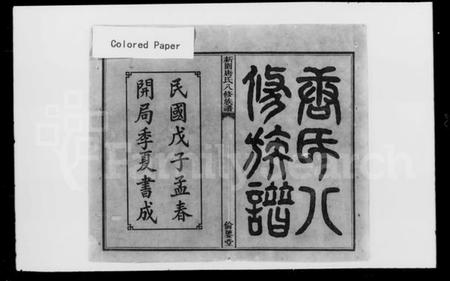 Colored Paper
唐氏八
修族譜
唐氏八修族譜
民國戊子孟春
開局季夏書成
FamilySearch